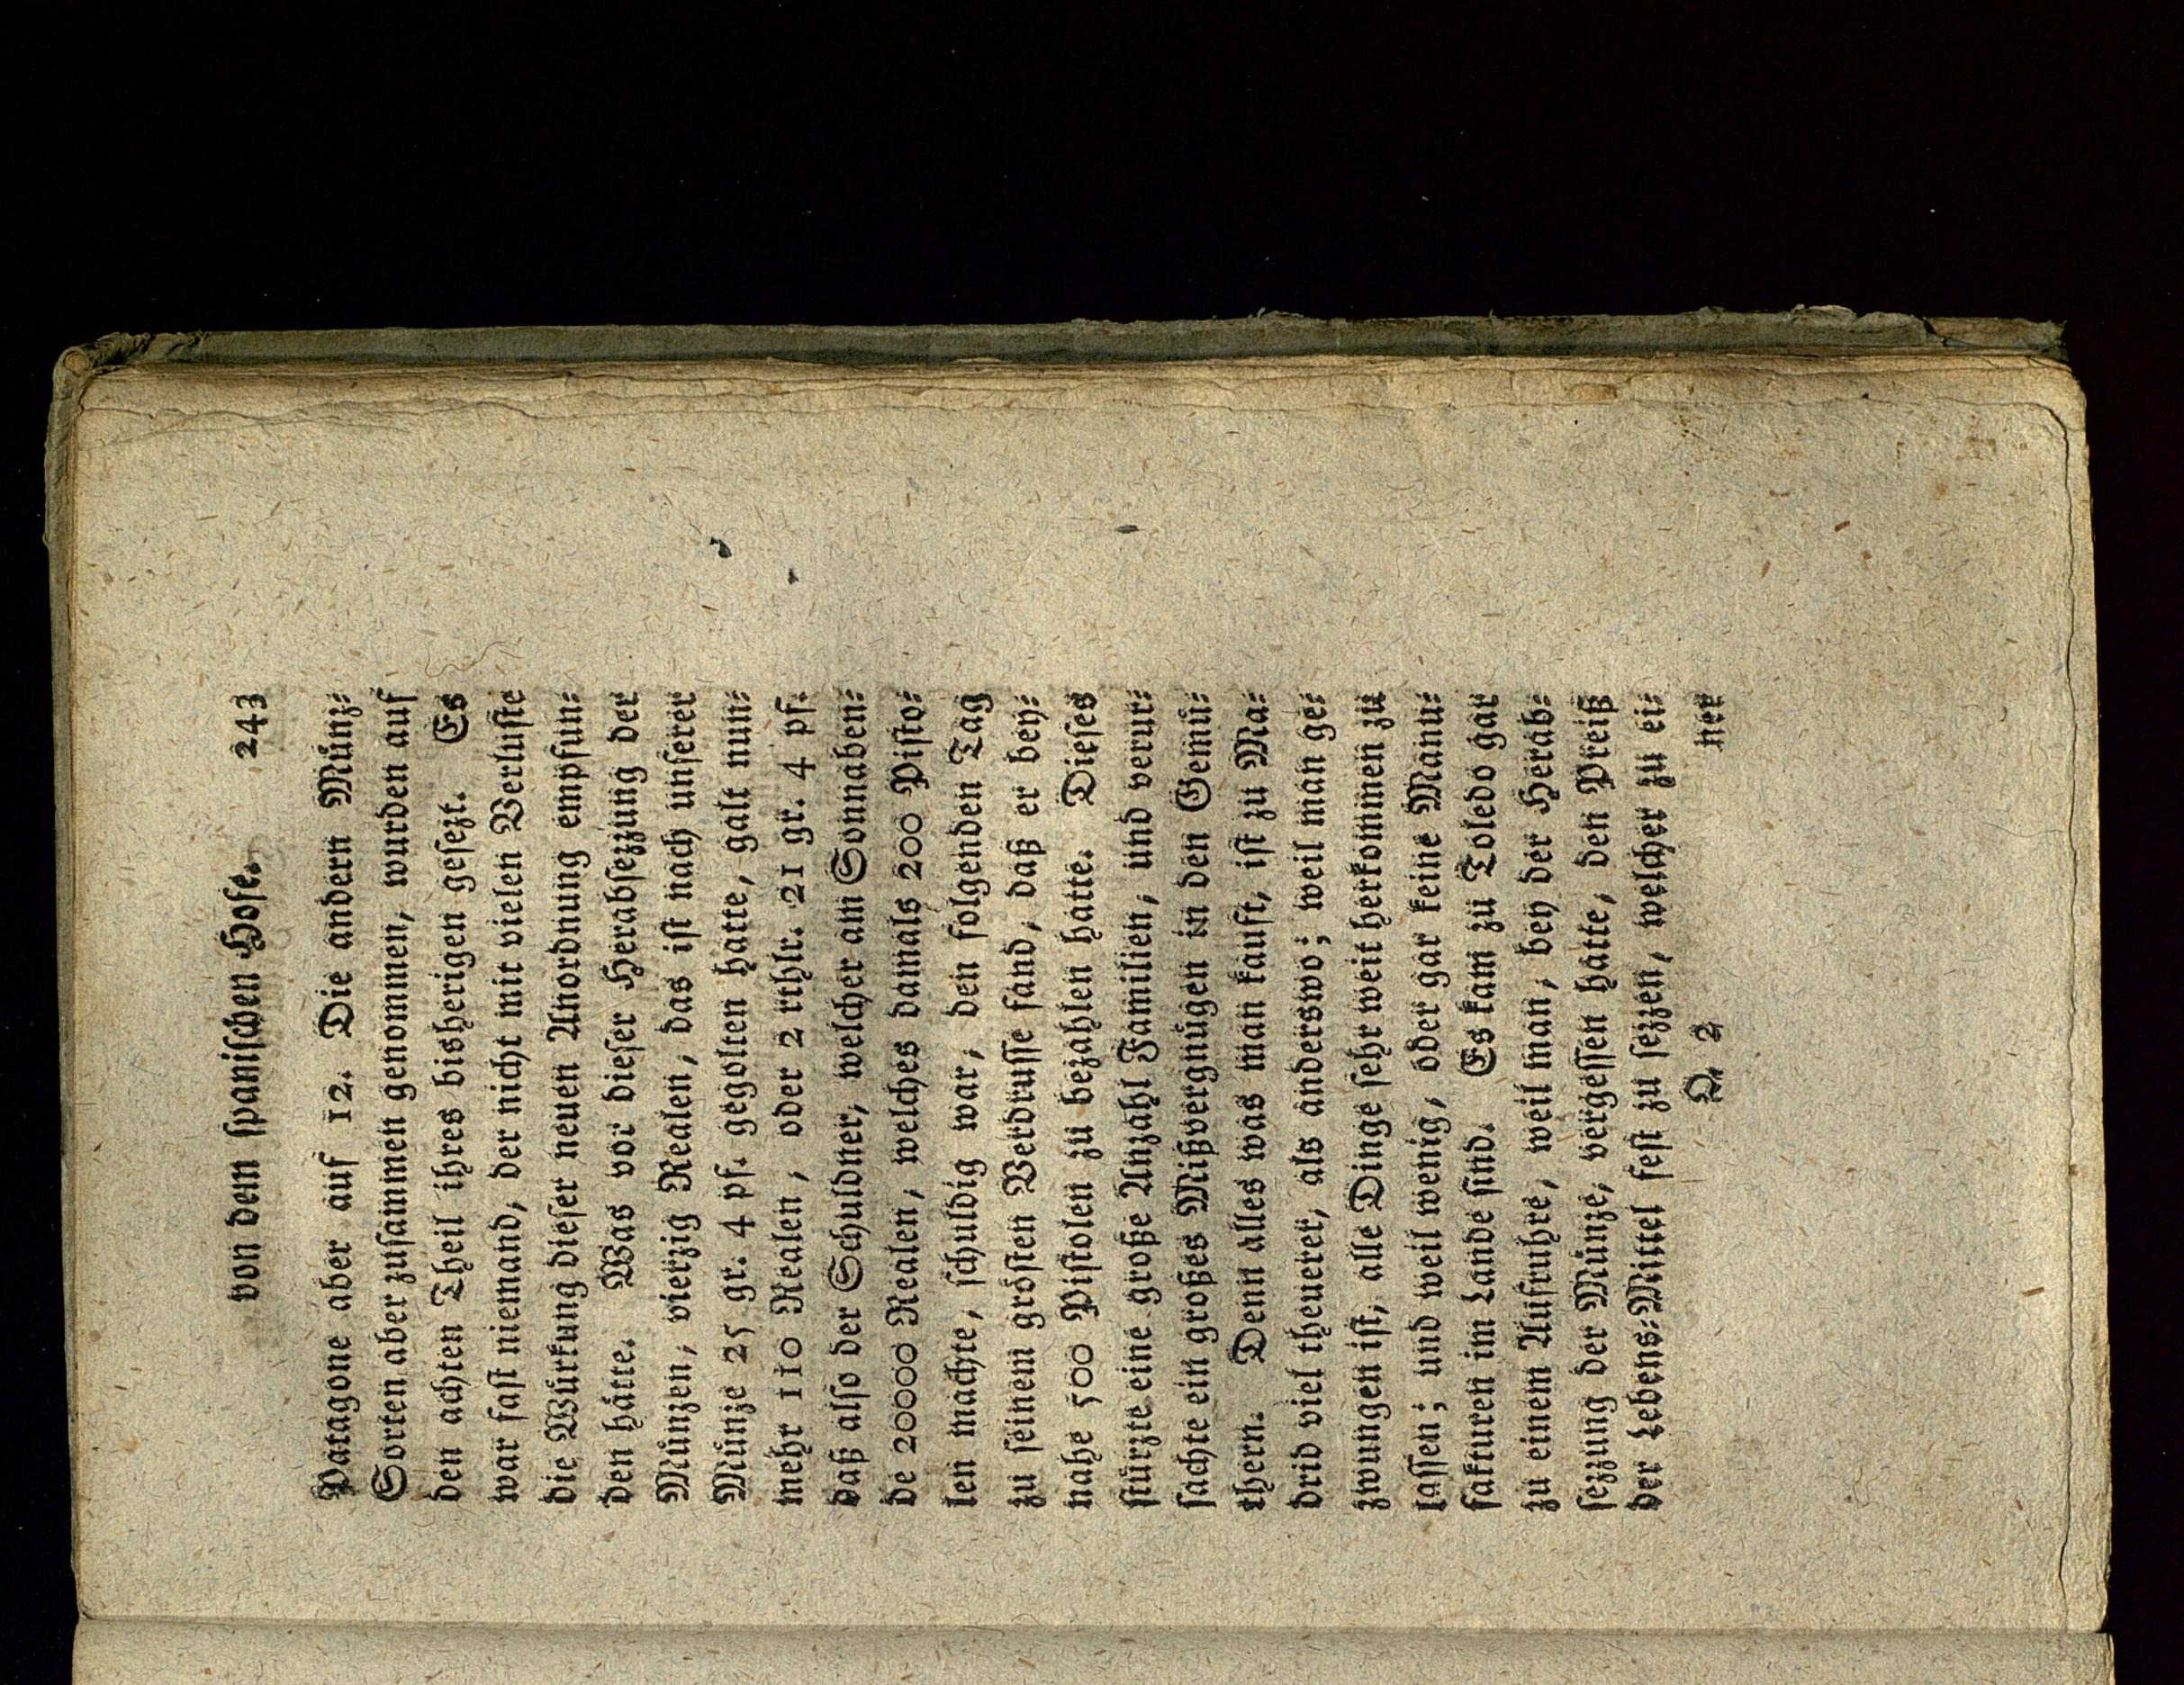 von dem spanischen Hofe. 243
Patagone aber auf 12. Die andern Münz-
Sorten aber zusammen genommen, wurden auf
den achten Theil ihres bisherigen gesezt. Es
war fast niemand, der nicht mit vielen Verluste
die Würkung dieser neuen Anordnung empfun-
den hätte. Was vor dieser Herabsezzung der
Münzen, vierzig Realen, das ist nach unserer
Münze 25 gr. 4 pf. gegolten hatte, galt nun-
mehr 110 Realen, oder 2 rthlr. 21 gr. 4 pf.
daß also der Schuldner, welcher am Sonnaben-
de 20000 Realen, welches damals 200 Pisto-
len machte, schuldig war, den folgenden Tag
zu seinem grösten Verdrusse fand, daß er bey-
nahe 500 Pistolen zu bezahlen hatte. Dieses
stürzte eine große Anzahl Familien, und verur-
sachte ein großes Mißvergnügen in den Gemü-
thern. Denn alles was man kauft, ist zu Ma-
drid viel theuerer, als anderswo; weil man ge-
zwungen ist, alle Dinge sehr weit herkommen zu
lassen; und weil wenig, oder gar keine Manu-
fakturen im Lande sind. Es kam zu Toledo gar
zu einem Aufruhre, weil man, bey der Herab-
sezzung der Münze, vergessen hatte, den Preiß
der Lebens-Mittel fest zu sezzen, welcher zu ei-
Q 2 ner